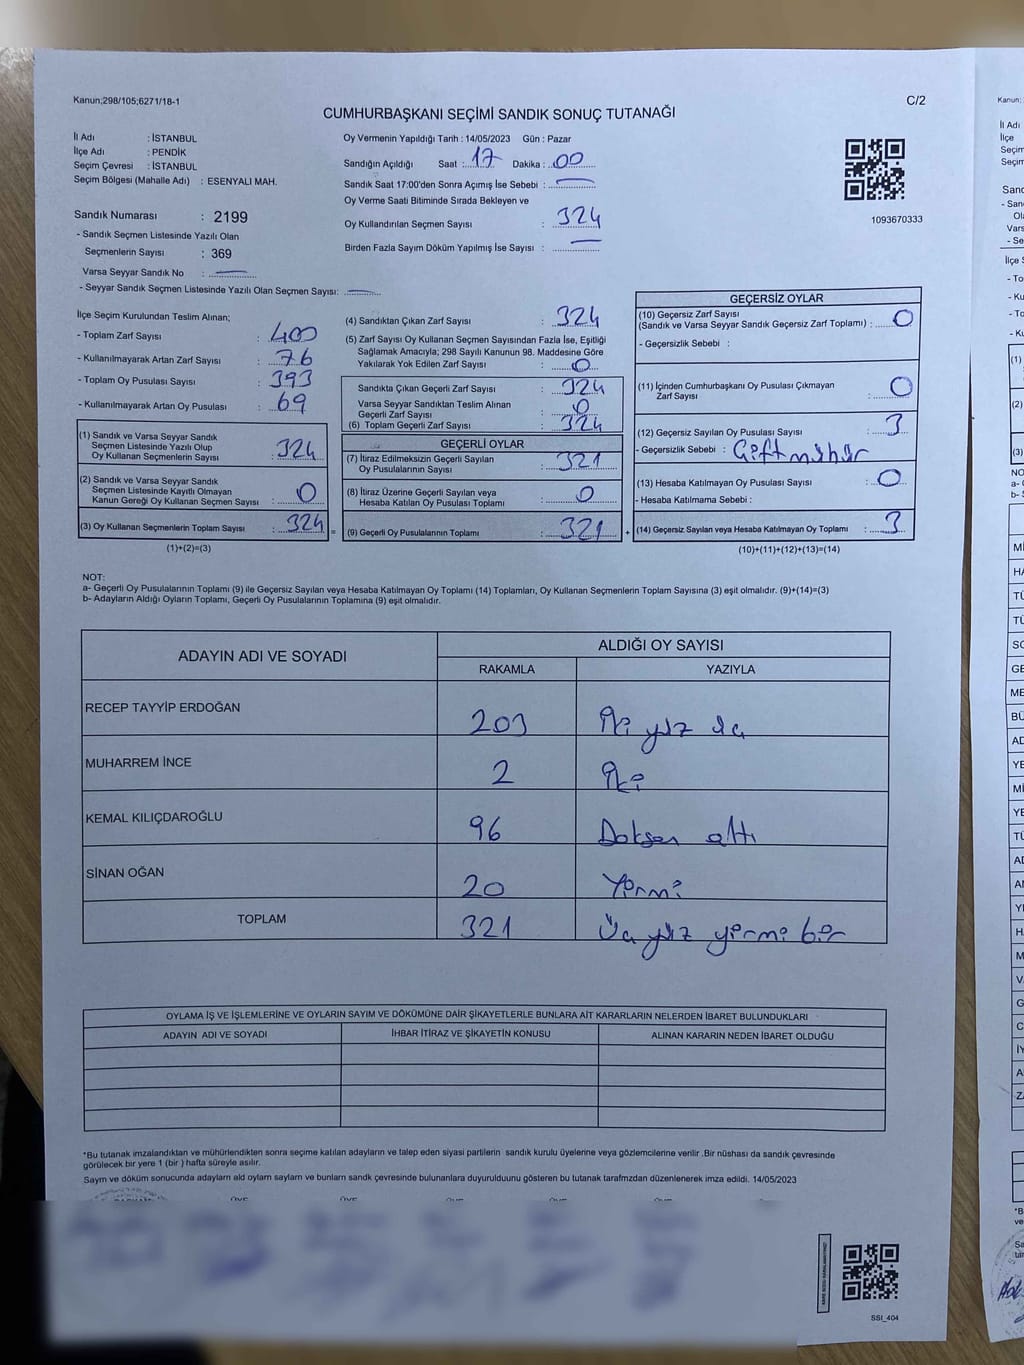 Kanun;298/105;6271/18-1
C/2
CUMHURBAŞKANI SEÇİMİ SANDIK SONUÇ TUTANAĞI
İl Adı : İSTANBUL
İlçe Adı : PENDİK
Seçim Çevresi : İSTANBUL
Seçim Bölgesi (Mahalle Adı) : ESENYALI MAH.
Sandık Numarası : 2199
- Sandık Seçmen Listesinde Yazılı Olan
Seçmenlerin Sayısı : 369
Varsa Seyyar Sandık No :
- Seyyar Sandık Seçmen Listesinde Yazılı Olan Seçmen Sayısı:
Oy Vermenin Yapıldığı Tarih : 14/05/2023 Gün : Pazar
Sandığın Açıldığı Saat : 17 Dakika : 00
Sandık Saat 17:00'den Sonra Açımış İse Sebebi :
Oy Verme Saati Bitiminde Sırada Bekleyen ve
Oy Kullandırılan Seçmen Sayısı : 324
Birden Fazla Sayım Döküm Yapılmış İse Sayısı :
1093670333
İlçe Seçim Kurulundan Teslim Alınan;
- Toplam Zarf Sayısı : 400
- Kullanılmayarak Artan Zarf Sayısı : 76
- Toplam Oy Pusulası Sayısı : 393
- Kullanılmayarak Artan Oy Pusulası : 69
(1) Sandık ve Varsa Seyyar Sandık
Seçmen Listesinde Yazılı Olup
Oy Kullanan Seçmenlerin Sayısı : 324
(2) Sandık ve Varsa Seyyar Sandık
Seçmen Listesinde Kayıtlı Olmayan
Kanun Gereği Oy Kullanan Seçmen Sayısı : 0
(3) Oy Kullanan Seçmenlerin Toplam Sayısı : 324
(1)+(2)=(3)
(4) Sandıktan Çıkan Zarf Sayısı : 324
(5) Zarf Sayısı Oy Kullanan Seçmen Sayısından Fazla İse, Eşitliği
Sağlamak Amacıyla; 298 Sayılı Kanunun 98. Maddesine Göre
Yakılarak Yok Edilen Zarf Sayısı : 0
Sandıkta Çıkan Geçerli Zarf Sayısı : 324
Varsa Seyyar Sandıktan Teslim Alınan
Geçerli Zarf Sayısı : 0
(6) Toplam Geçerli Zarf Sayısı : 324
GEÇERLİ OYLAR
(7) İtiraz Edilmeksizin Geçerli Sayılan
Oy Pusulalarının Sayısı : 321
(8) İtiraz Üzerine Geçerli Sayılan veya
Hesaba Katılan Oy Pusulaları Toplamı : 0
(9) Geçerli Oy Pusulalarının Toplamı : 321
GEÇERSİZ OYLAR
(10) Geçersiz Zarf Sayısı
(Sandık ve Varsa Seyyar Sandık Geçersiz Zarf Toplamı) : 0
- Geçersizlik Sebebi :
(11) İçinden Cumhurbaşkanı Oy Pusulası Çıkmayan
Zarf Sayısı : 0
(12) Geçersiz Sayılan Oy Pusulası Sayısı : 3
- Geçersizlik Sebebi : Çift mühür
(13) Hesaba Katılmayan Oy Pusulası Sayısı : 0
- Hesaba Katılmama Sebebi :
(14) Geçersiz Sayılan veya Hesaba Katılmayan Oy Toplamı : 3
(10)+(11)+(12)+(13)=(14)
NOT:
a- Geçerli Oy Pusulalarının Toplamı (9) ile Geçersiz Sayılan veya Hesaba Katılmayan Oy Toplamı (14) Toplamları, Oy Kullanan Seçmenlerin Toplam Sayısına (3) eşit olmalıdır. (9)+(14)=(3)
b- Adayların Aldığı Oyların Toplamı, Geçerli Oy Pusulalarının Toplamına (9) eşit olmalıdır.
ADAYIN ADI VE SOYADI ALDIĞI OY SAYISI
RAKAMLA YAZIYLA
RECEP TAYYİP ERDOĞAN 203 İki yüz üç
MUHARREM İNCE 2 İki
KEMAL KILIÇDAROĞLU 96 Doksan altı
SİNAN OĞAN 20 Yirmi
TOPLAM 321 Üç yüz yirmi bir
OYLAMA İŞ VE İŞLEMLERİNE VE OYLARIN SAYIM VE DÖKÜMÜNE DAİR ŞİKAYETLERLE BUNLARA AİT KARARLARIN NELERDEN İBARET BULUNDUKLARI
ADAYIN ADI VE SOYADI İHBAR İTİRAZ VE ŞİKAYETİN KONUSU ALINAN KARARIN NEDEN İBARET OLDUĞU
*Bu tutanak imzalandıktan ve mühürlendikten sonra seçime katılan adayların ve talep eden siyasi partilerin sandık kurulu üyelerine veya gözlemcilerine verilir .Bir nüshası da sandık çevresinde
görülecek bir yere 1 (bir ) hafta süreyle asılır.
Sayım ve döküm sonucunda adayların ald oyların sayların ve bunların sandk çevresinde bulunanlara duyurulduunu gösteren bu tutanak tarafmzdan düzenlenerek imza edildi. 14/05/2023
SSI_404